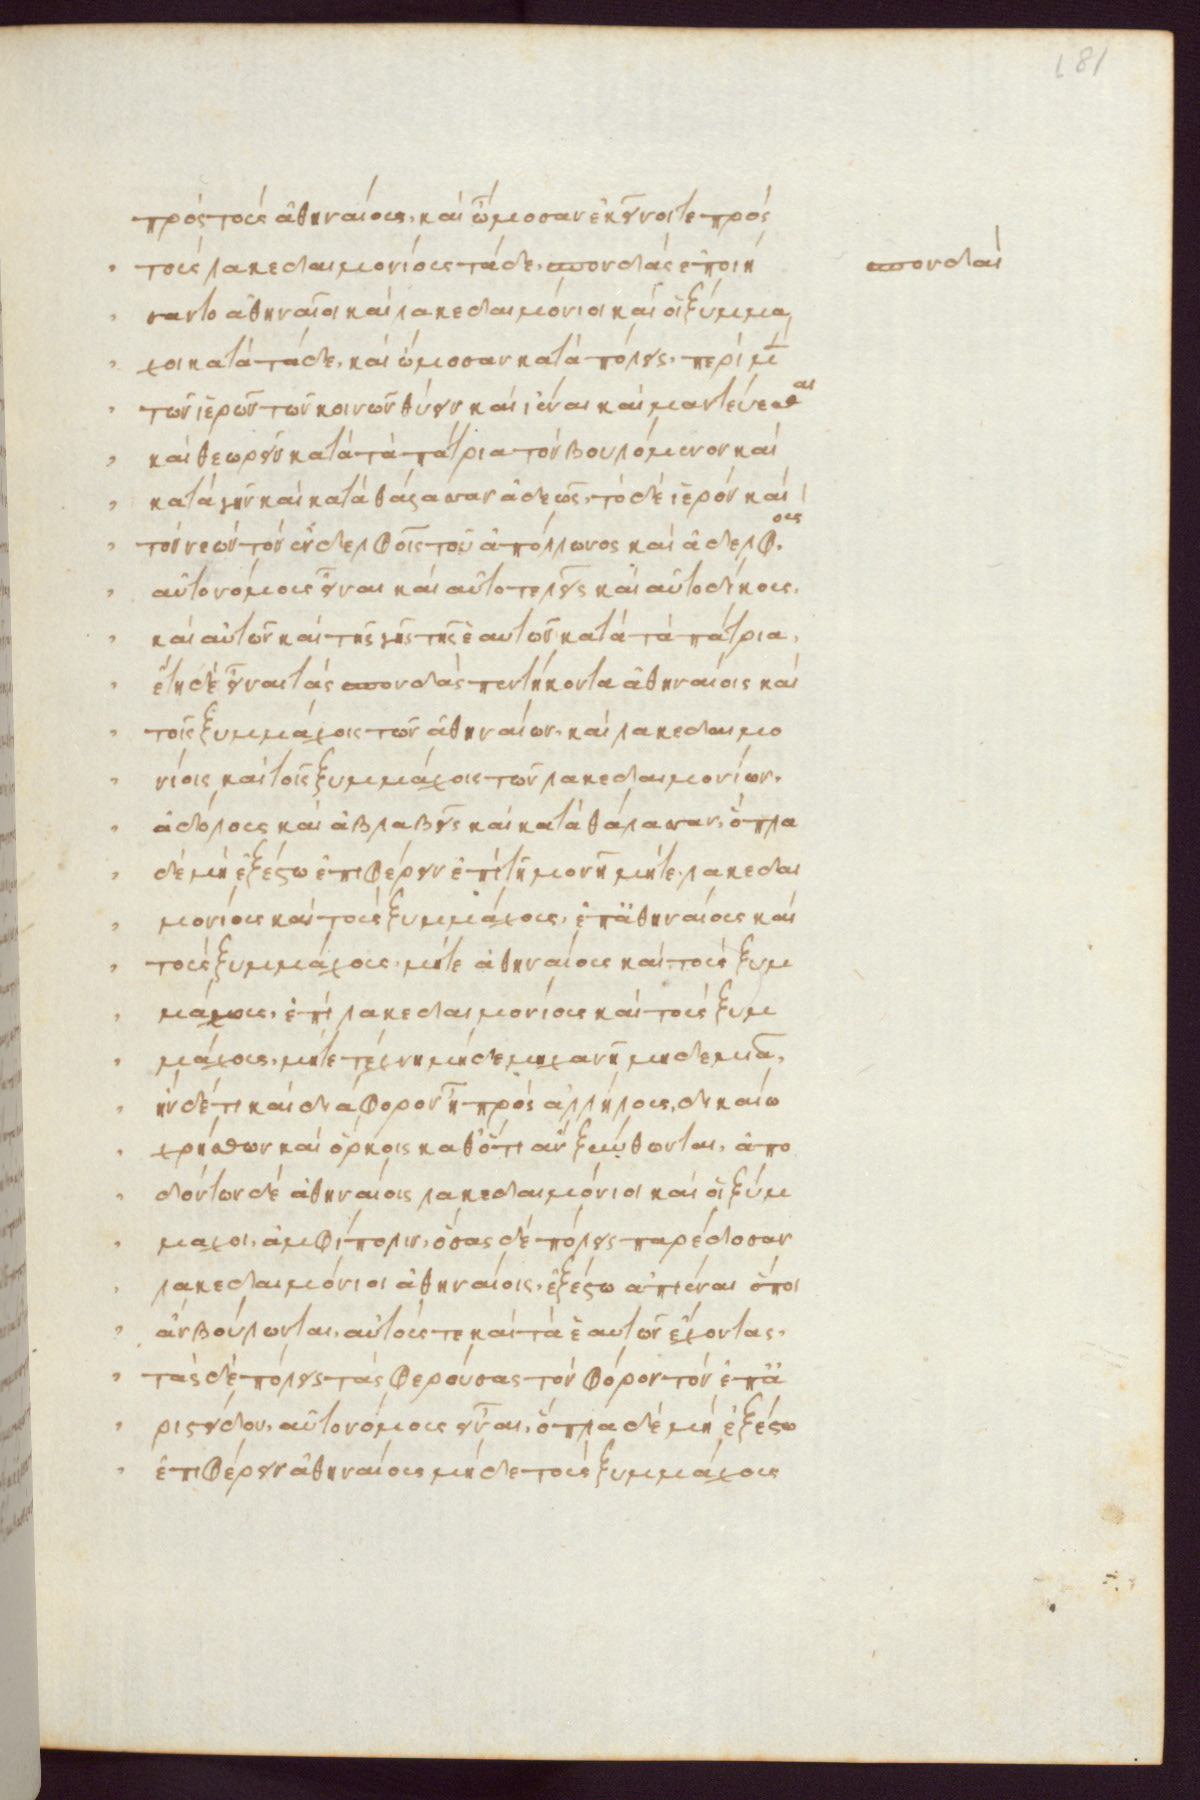 181
πρὸς τοὺς ἀθηναίους, καὶ ὤμοσαν ἐκεῖνοί τε πρὸς
τοὺς λακεδαιμονίους τάδε. σπονδὰς ἐποιή
σπονδαί
σαντο ἀθηναῖοι καὶ λακεδαιμόνιοι καὶ οἱ ξύμμα
χοι κατὰ τάδε, καὶ ὤμοσαν κατὰ πόλεις. περὶ μὲν
τῶν ἱερῶν τῶν κοινῶν θύειν καὶ ἰέναι καὶ μαντεύεσθαι
καὶ θεωρεῖν κατὰ τὰ πάτρια τὸν βουλόμενον καὶ
κατὰ γῆν καὶ κατὰ θάλασσαν ἀδεῶς. τὸ δὲ ἱερὸν καὶ
τὸν νεὼν τὸν ἐν δελφοῖς τοῦ ἀπόλλωνος καὶ ἀδελφοὺς
αὐτονόμους εἶναι καὶ αὐτοτελεῖς καὶ αὐτοδίκους.
καὶ αὑτῶν καὶ τῆς γῆς τῆς ἑαυτῶν κατὰ τὰ πάτρια.
ἔτη δὲ εἶναι τὰς σπονδὰς πεντήκοντα ἀθηναίοις καὶ
τοῖς ξυμμάχοις τῶν ἀθηναίων. καὶ λακεδαιμο
νίοις καὶ τοῖς ξυμμάχοις τῶν λακεδαιμονίων.
ἀδόλους καὶ ἀβλαβεῖς καὶ κατὰ θάλασσαν. ὅπλα
δὲ μὴ ἐξέστω ἐπιφέρειν ἐπὶ τῇ μονῇ μήτε λακεδαι
μονίους καὶ τοὺς ξυμμάχους, ἐπ' ἀθηναίους καὶ
τοὺς ξυμμάχους. μήτε ἀθηναίους καὶ τοὺς ξυμ
μάχους, ἐπὶ λακεδαιμονίους καὶ τοὺς ξυμ
μάχους. μήτε τέχνῃ μήδε μηχανῇ μηδεμιᾷ.
ἢν δέ τι καὶ διάφορον ᾖ πρὸς ἀλλήλους, δικαίω
χρήσθων καὶ ὅρκοις καθ' ὅτι ἂν ξυνθῶνται. ἀπο
δόντων δὲ ἀθηναίοις λακεδαιμόνιοι καὶ οἱ ξύμ
μαχοι. ἀμφίπολιν. ὅσας δὲ πόλεις παρέδοσαν
λακεδαιμόνιοι ἀθηναίοις. ἐξέστω ἀπιέναι ὅποι
ἂν βούλωνται. αὐτούς τε καὶ τὰ ἑαυτῶν ἔχοντας.
τὰς δὲ πόλεις τὰς φερούσας τὸν φόρον τὸν ἐπ' ἀ
ριστείδου. αὐτονόμους εἶναι. ὅπλα δὲ μὴ ἐξέστω
ἐπιφέρειν ἀθηναίους μήδε τοὺς ξυμμάχους